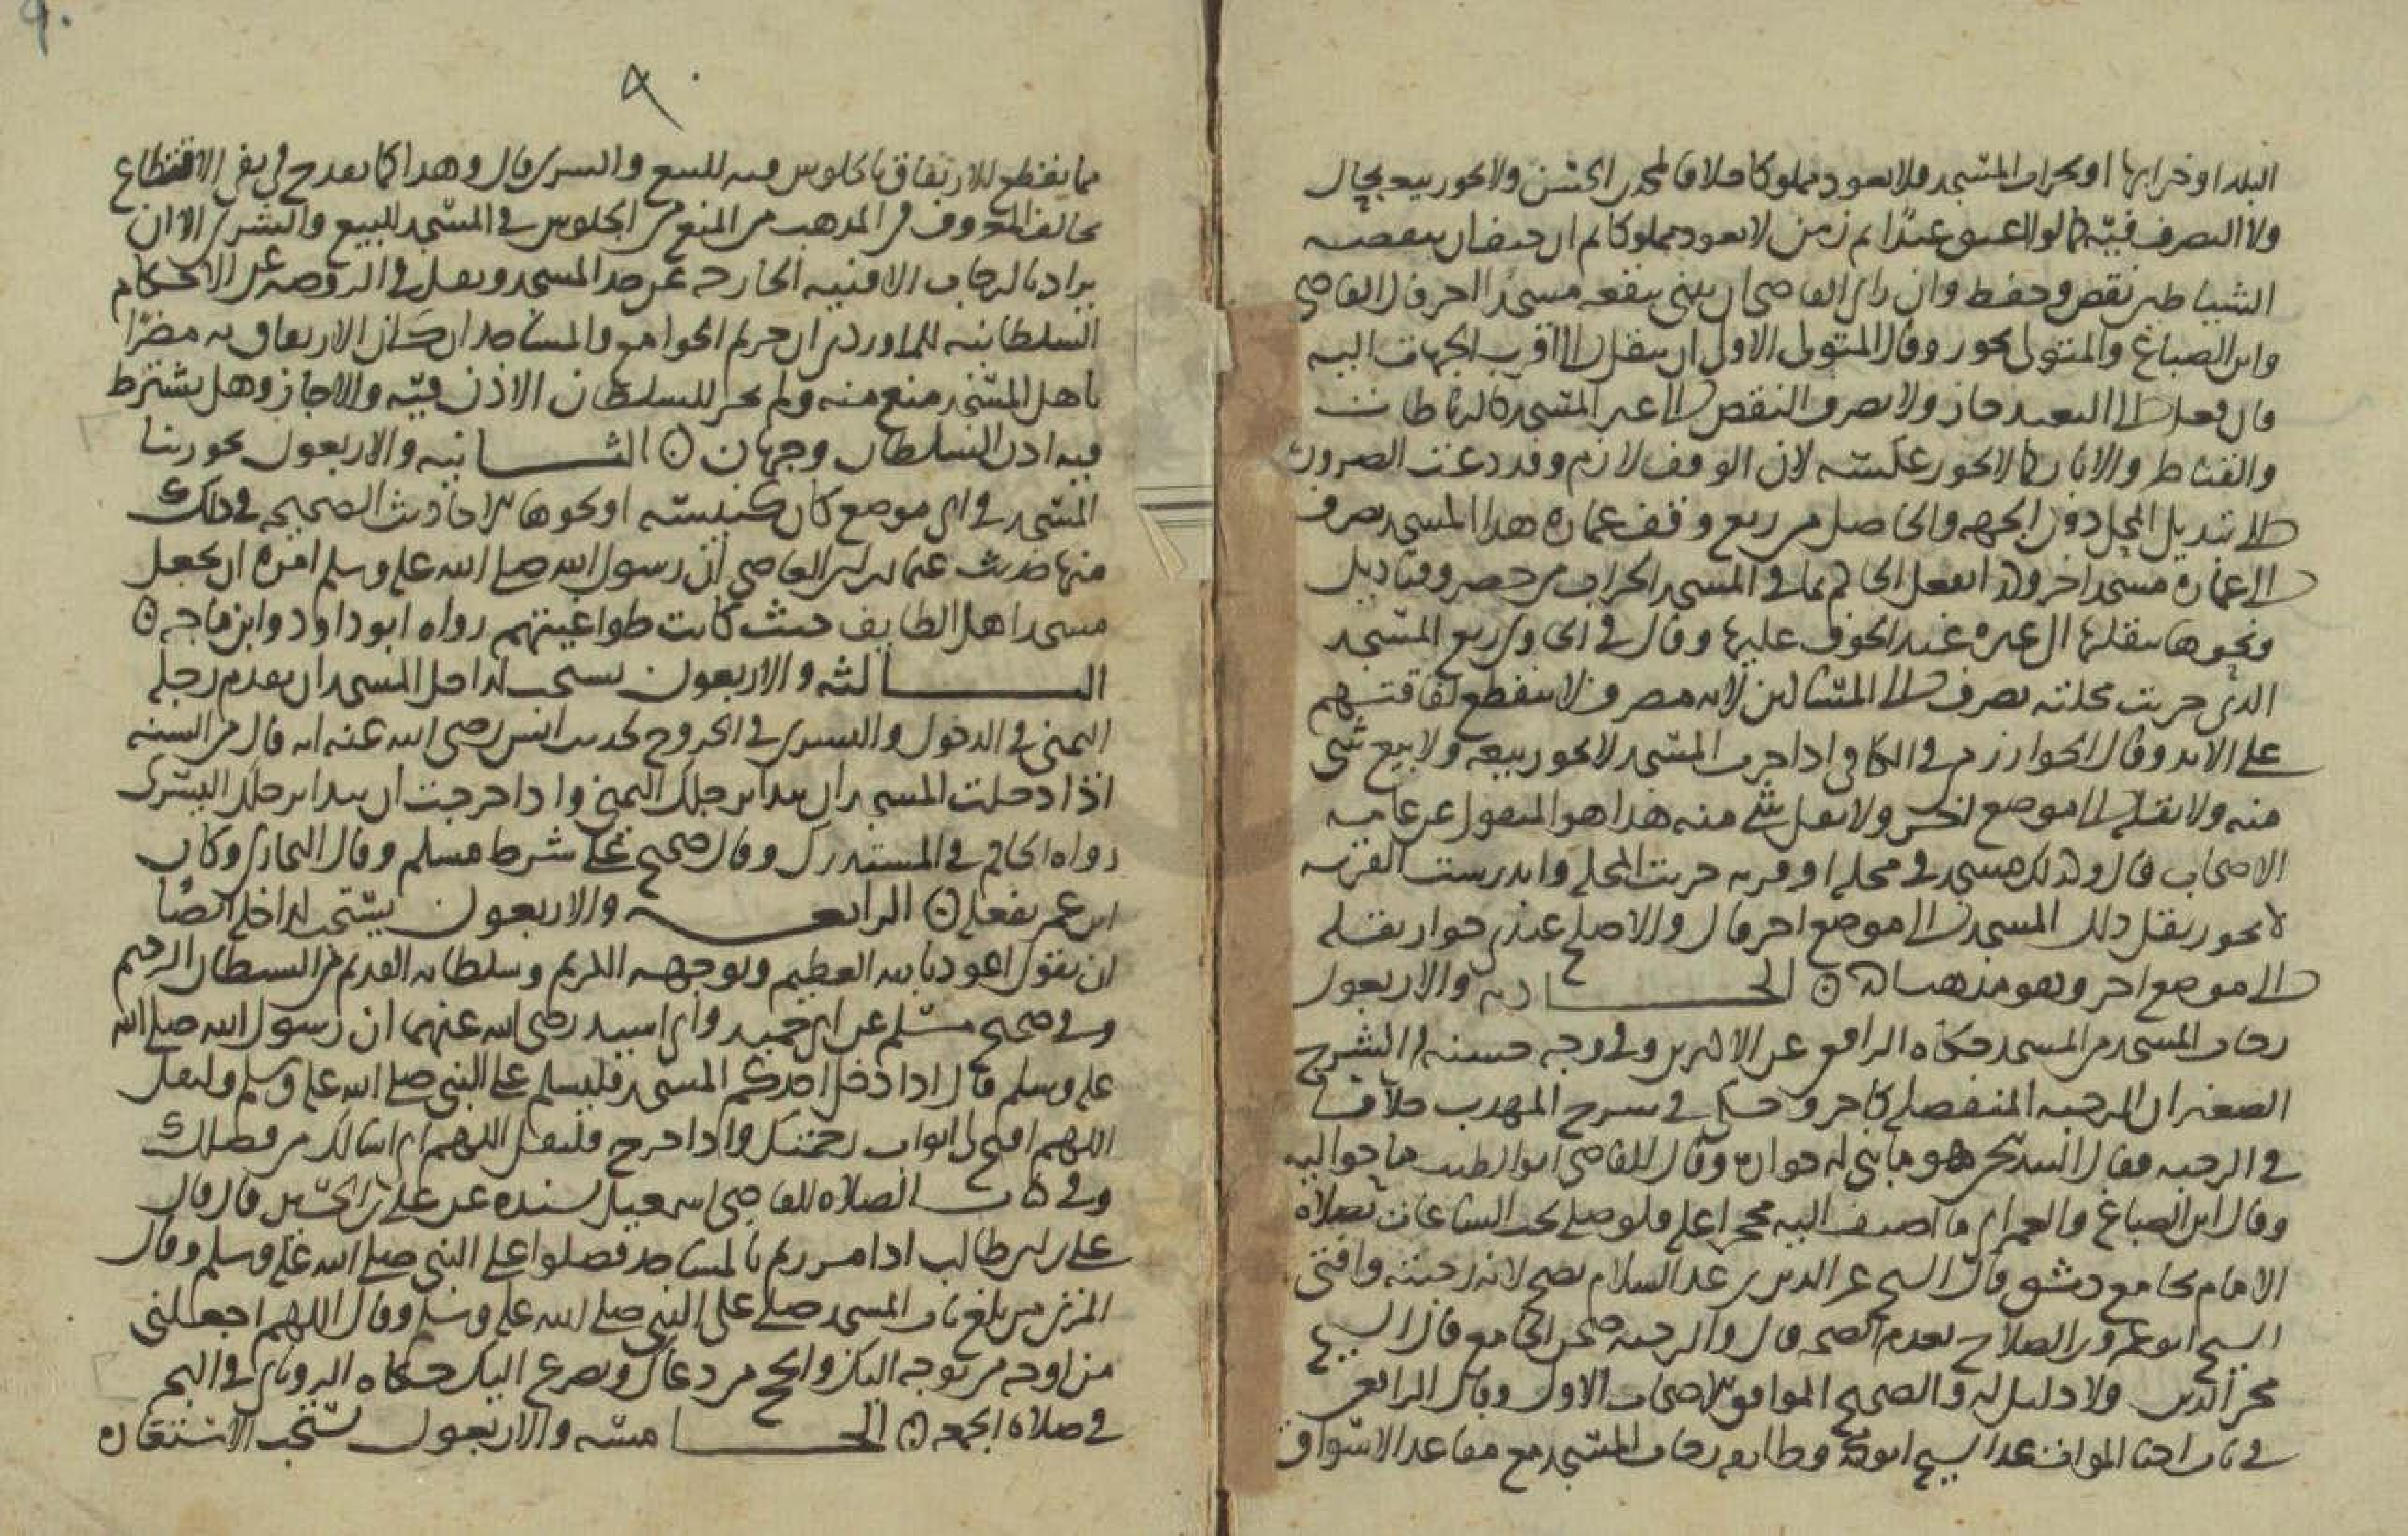 البلد او خرابها او بخراب المسجد فلا يعود مملوكا خلافا لمحمد بن الحسن ولا يجوز بيعه بحال
ولا التصرف فيه كما لو اعتق عبدا ثم زمن لا يعود مملوكا ثم ان خيف ان ينقضه
الشياطين نقض وحفظ وان راى القاضي ان يبني بنقضه مسجدا اخر قال القاضي
وابن الصباغ والمتولي يجوز وقال المتولي الاولى ان ينقل الى اقرب الجهات اليه
فان نقل الى البعيد جاز ولا يصرف النقض الى غير المسجد كالرباطات
والقناطر والابار كما لا يجوز عكسه لان الوقف لازم وقد دعت الضرورة
الى تبديل المحل دون الجهة والحاصل من ريع وقف عمارة هذا المسجد يصرف
الى عمارة مسجد اخر وكذا يفعل الحاكم بما في المسجد الخراب من حصر وقناديل
ونحوها ينقلها الى غيره عند الخوف عليها وقال في الحاوي ريع المسجد
الذي خربت محلته يصرف الى المساكين لانه مصرف لا ينقطع لفاقتهم
على الابد وقال الخوارزمي في الكافي اذا خرب المسجد لا يجوز بيعه ولا بيع شي
منه ولا نقله الى موضع اخر ولا نقل شي منه هذا هو المنقول عن عامة
الاصحاب قال وكذلك مسجد في محلة او قرية خربت المحلة واندرست القرية
لا يجوز نقل ذلك المسجد الى موضع اخر قال والاصح عندي جواز نقله
الى موضع اخر وهو مذهب مالك ۞ الحادية والاربعون
رحاب المسجد من المسجد حكاه الرافعي عن الاكثرين وفي وجه حسنه في الشرح
الصغير ان الرحبة المنفصلة كاخر وحكى في شرح المهذب خلافا
في الرحبة فقال البندنيجي هو ما بني له جواره وقال القاضي ابو الطيب ما حواليه
وقال ابن الصباغ والعمراني ما اضيف اليه محجرا عليه فلو صلى تحت الساعات بصلاة
الامام بجامع دمشق قال الشيخ عز الدين بن عبد السلام يصح لانه رحبته وافتى
الشيخ ابو عمرو بن الصلاح بعدم الصحة قال والرحبة صحن الجامع قال الشيخ
محي الدين ولا دليل له والصحيح الموافق للاصحاب الاول وقال الرافعي
في باب احيا الموات عد الشيخ ابو محمد وطايفة رحاب المسجد مع مقاعد الاسواق
مما يقطع للارتفاق بالجلوس فيه للبيع والشرى قال وهذا كما يقدح في نفي الاقطاع
يخالف المعروف في المذهب من المنع من الجلوس في المسجد للبيع والشرى الا ان
يراد بالرحاب الافنية الخارجة عن حد المسجد ونقل في الروضة عن الاحكام
السلطانية للماوردي ان حريم الجوامع والمساجد ان كان الارتفاق به مضرا
باهل المسجد منع منه ولم يجز للسلطان الاذن فيه والا جاز وهل يشترط
فيه اذن السلطان وجهان ۞ الثانية والاربعون يجوز بنا
المسجد في اي موضع كان كنيسة او نحوها للاحاديث الصحيحة في ذلك
منها حديث عثمان بن ابي العاصي ان رسول الله صلى الله عليه وسلم امره ان يجعل
مسجد اهل الطايف حيث كانت طواغيتهم رواه ابو داود وابن ماجه ۞
الثالثة والاربعون يستحب لداخل المسجد ان يقدم رجله
اليمنى في الدخول واليسرى في الخروج لحديث انس رضي الله عنه انه قال من السنة
اذا دخلت المسجد ان تبدا برجلك اليمنى واذا خرجت ان تبدا برجلك اليسرى
رواه الحاكم في المستدرك وقال صحيح على شرط مسلم وقال البخاري وكان
ابن عمر يفعله ۞ الرابعة والاربعون يستحب لداخله ايضا
ان يقول اعوذ بالله العظيم وبوجهه الكريم وسلطانه القديم من الشيطان الرجيم
وفي صحيح مسلم عن ابي حميد وابي اسيد رضي الله عنهما ان رسول الله صلى الله
عليه وسلم قال اذا دخل احدكم المسجد فليسلم على النبي صلى الله عليه وسلم وليقل
اللهم افتح لي ابواب رحمتك واذا خرج فليقل اللهم اني اسالك من فضلك
وفي كتاب الصلاة للقاضي اسمعيل بسنده عن علي بن الحسين قال قال
علي بن ابي طالب اذا مررتم بالمساجد فصلوا على النبي صلى الله عليه وسلم وقال
المزني من بلغ باب المسجد صلى على النبي صلى الله عليه وسلم وقال اللهم اجعلني
من اوجه من توجه اليك وانجح من دعاك وتضرع اليك حكاه الروياني في البحر
في صلاة الجمعة ۞ الخامسة والاربعون يستحب الاستقاء